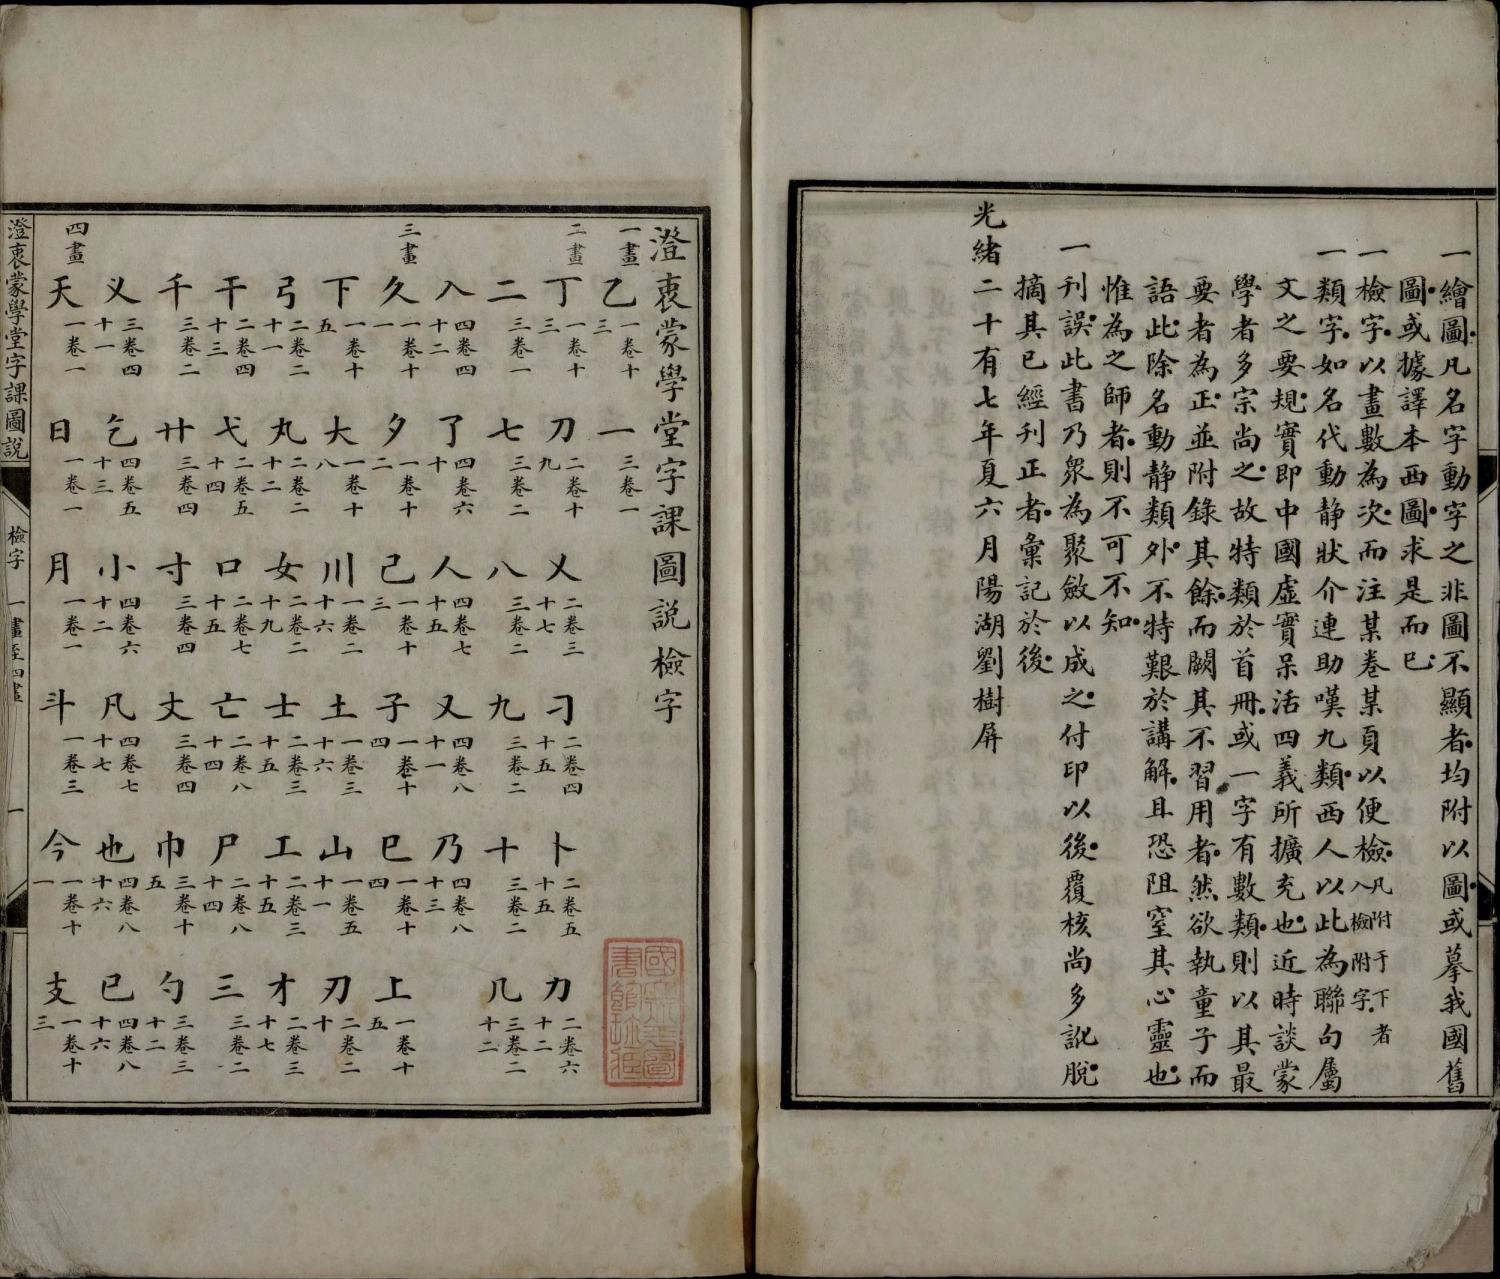 一繪圖凡名字動字之非圖不顯者均附以圖或摹我國舊
圖或據譯本西圖求是而已
一檢字以畫數為次而注某卷某頁以便檢凡附于下者入檢附字
一類字如名代動静狀介連助嘆九類西人以此為聯句屬
文之要規實即中國虛實呆活四義所擴充也近時談蒙
學者多宗尚之故特類於首冊或一字有數類則以其最
要者為正並附錄其餘而闕其不習用者然欲執童子而
語此除名動静類外不特艱於講解且恐阻窒其心靈也
惟為之師者則不可不知
一刊誤此書乃眾為聚斂以成之付印以後覆核尚多訛脫
摘其已經刊正者彙記於後
光緒二十有七年夏六月陽湖劉樹屏
澄衷蒙學堂字課圖說檢字
一畫 乙 一卷十三 一 三卷一
二畫 丁 一卷十三 刀 二卷十九 乂 二卷三十七 刁 二卷四十五 卜 二卷五十五 力 二卷六十二
二 三卷一 七 三卷二 八 三卷二 九 三卷二 十 三卷二 几 三卷二十二
入 四卷四十二 了 四卷六十 人 四卷七十五 又 四卷八十一 乃 四卷八十三
三畫 久 一卷十一 夕 一卷十二 己 一卷十三 子 一卷十四 巳 一卷十四 上 一卷十五
下 一卷十五 大 一卷十八 川 一卷二十六 土 一卷三十六 山 一卷五十一 刃 二卷二十
弓 二卷二十一 丸 二卷二十二 女 二卷二十九 士 二卷三十五 工 二卷三十五 才 二卷三十七
干 二卷四十三 弋 二卷五十四 口 二卷七十五 亡 二卷八十四 尸 二卷八十四 三 三卷二
千 三卷二 廾 三卷四 寸 三卷四 丈 三卷四 巾 三卷十五 勺 三卷三十二
义 三卷四十一 乞 四卷五十三 小 四卷六十二 凡 四卷七十七 也 四卷八十六 已 四卷八十六
四畫 天 一卷一 日 一卷一 月 一卷一 斗 一卷三 今 一卷十一 支 一卷十三
澄衷蒙學堂字課圖說 檢字 一畫至四畫 一